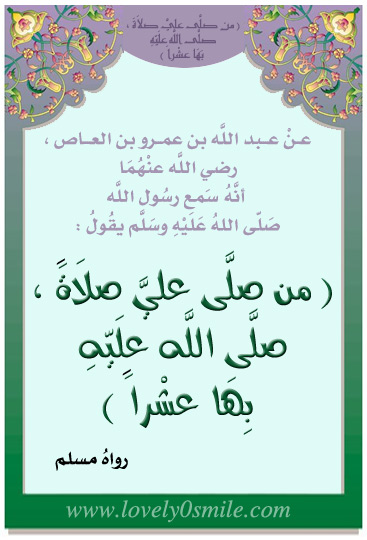 ( من صلَّى عليَّ صلاَةً ،
صلَّى اللَّه علَيّهِ
بِهَا عشْراً )
عـنْ عـبد اللَّه بن عمـرو بن العـاص ،
رضي اللَّه عنْهُمَا
أنَّهُ سَمع رسُول اللَّه
صَلّى اللهُ عَلَيْهِ وسَلَّم يقُولُ :
( من صلَّى عليَّ صلاَةً ،
صلَّى اللَّه علَيّهِ
بِهَا عشْراً )
رواهُ مسلم
www.lovely0smile.com